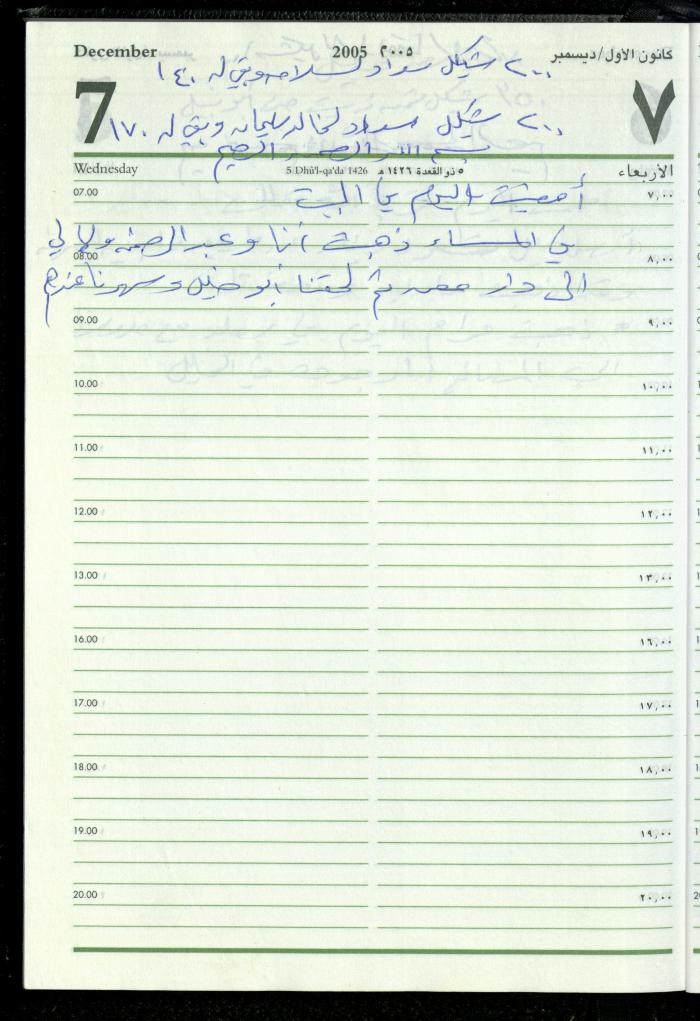 December 2005 ٢٠٠٥ كانون الاول/ديسمبر
٢٠٠ شيكل سداد لسلامه وبقي له ١٤٠
7 ٧
٢٠٠ شيكل سداد لخالد سليمان وبقي له ١٧٠
بسم الله الرحمن الرحيم
Wednesday 5 Dhü'l-qa'da 1426 ٥ ذو القعدة ١٤٢٦ هـ الأربعاء
07.00 ٧,٠٠
أمضيت اليوم في البيت
في المساء ذهبت أنا وعبد الرحمن
08.00 ٨,٠٠
الى دار ثم لحقنا أبو خليل وسهرنا عندهم
09.00 ٩,٠٠
10.00 ١٠,٠٠
11.00 ١١,٠٠
12.00 ١٢,٠٠
13.00 ١٣,٠٠
16.00 ١٦,٠٠
17.00 ١٧,٠٠
18.00 ١٨,٠٠
19.00 ١٩,٠٠
20.00 ٢٠,٠٠